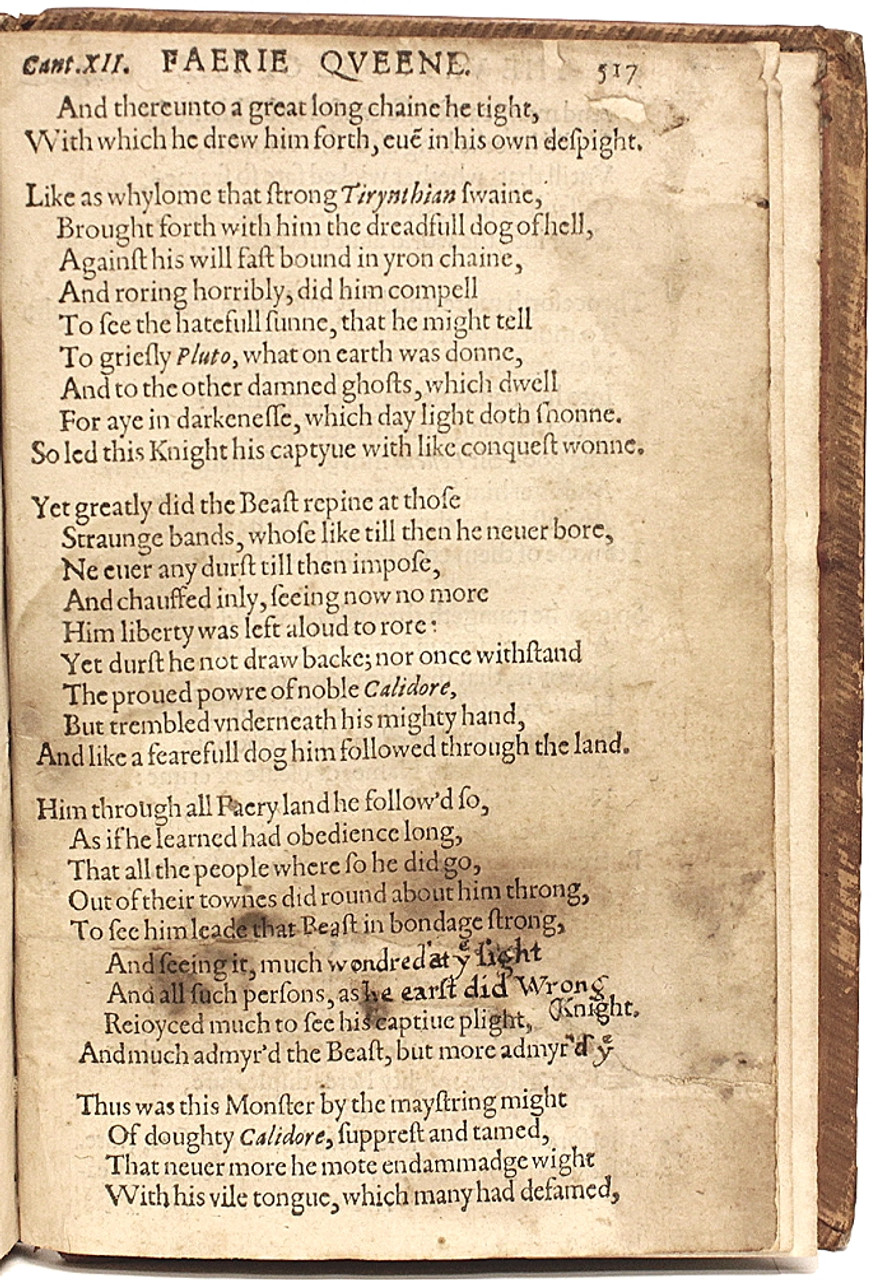 Cant.XII. FAERIE QVEENE. 517
And thereunto a great long chaine he tight,
With which he drew him forth, euẽ in his own deſpight.
Like as whylome that ſtrong Tirynthian ſwaine,
Brought forth with him the dreadfull dog of hell,
Againſt his will faſt bound in yron chaine,
And roring horribly, did him compell
To ſee the hatefull ſunne, that he might tell
To grieſly Pluto, what on earth was donne,
And to the other damned ghoſts, which dwell
For aye in darkeneſſe, which day light doth ſhonne.
So led this Knight his captyue with like conqueſt wonne.
Yet greatly did the Beaſt repine at thoſe
Straunge bands, whoſe like till then he neuer bore,
Ne euer any durſt till then impoſe,
And chauffed inly, ſeeing now no more
Him liberty was left aloud to rore:
Yet durſt he not draw backe; nor once withſtand
The proued powre of noble Calidore,
But trembled vnderneath his mighty hand,
And like a fearefull dog him followed through the land.
Him through all Faery land he follow'd ſo,
As if he learned had obedience long,
That all the people where ſo he did go,
Out of their townes did round about him throng,
To ſee him leade that Beaſt in bondage ſtrong,
And ſeeing it, much wondred at yͤ ſight
And all ſuch perſons, as he earſt did Wrong
Reioyced much to ſee his captiue plight, Knight.
And much admyr'd the Beaſt, but more admyr'd yͤ
Thus was this Monſter by the mayſtring might
Of doughty Calidore, ſuppreſt and tamed,
That neuer more he mote endammadge wight
With his vile tongue, which many had defamed,